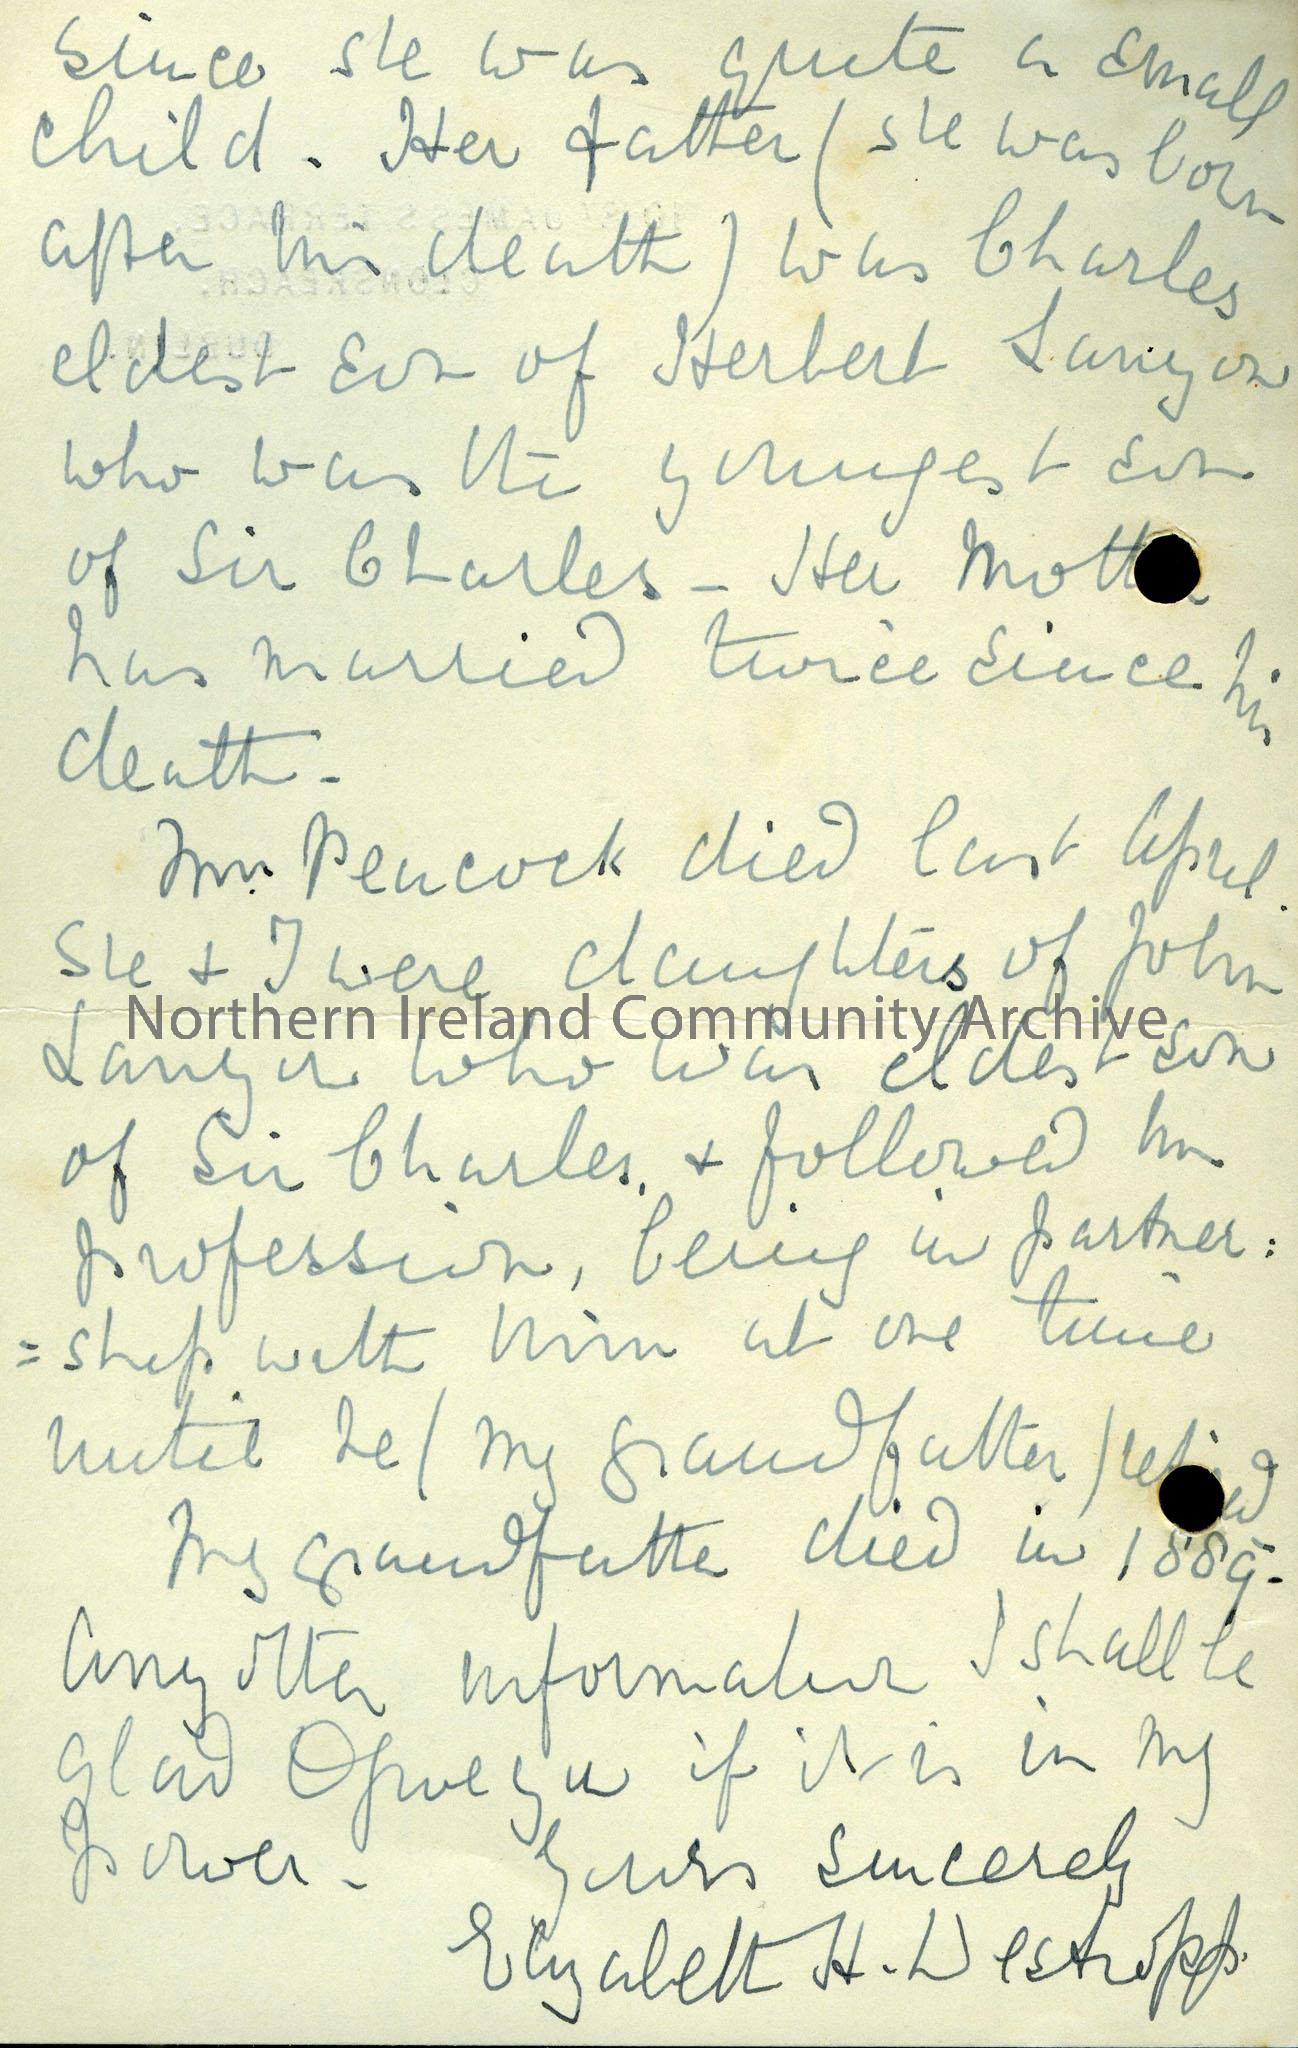 since she was quite a small
child. Her father (she was born
after his death) was Charles
eldest son of Herbert Lanyon
who was the youngest son
of Sir Charles – Her Mother
has married twice since his
death –
Mrs. Peacock died last April.
She + I were daughters of John
Northern Ireland Community Archive
Lanyon who was eldest son
of Sir Charles, + followed his
profession, being in partner:
=ship with him at one time
until he (my grandfather) retired
My grandfather died in 1889-
Any other information I shall be
glad to give you if it is in my
power –
Yours sincerely
Elizabeth H. Westropp.